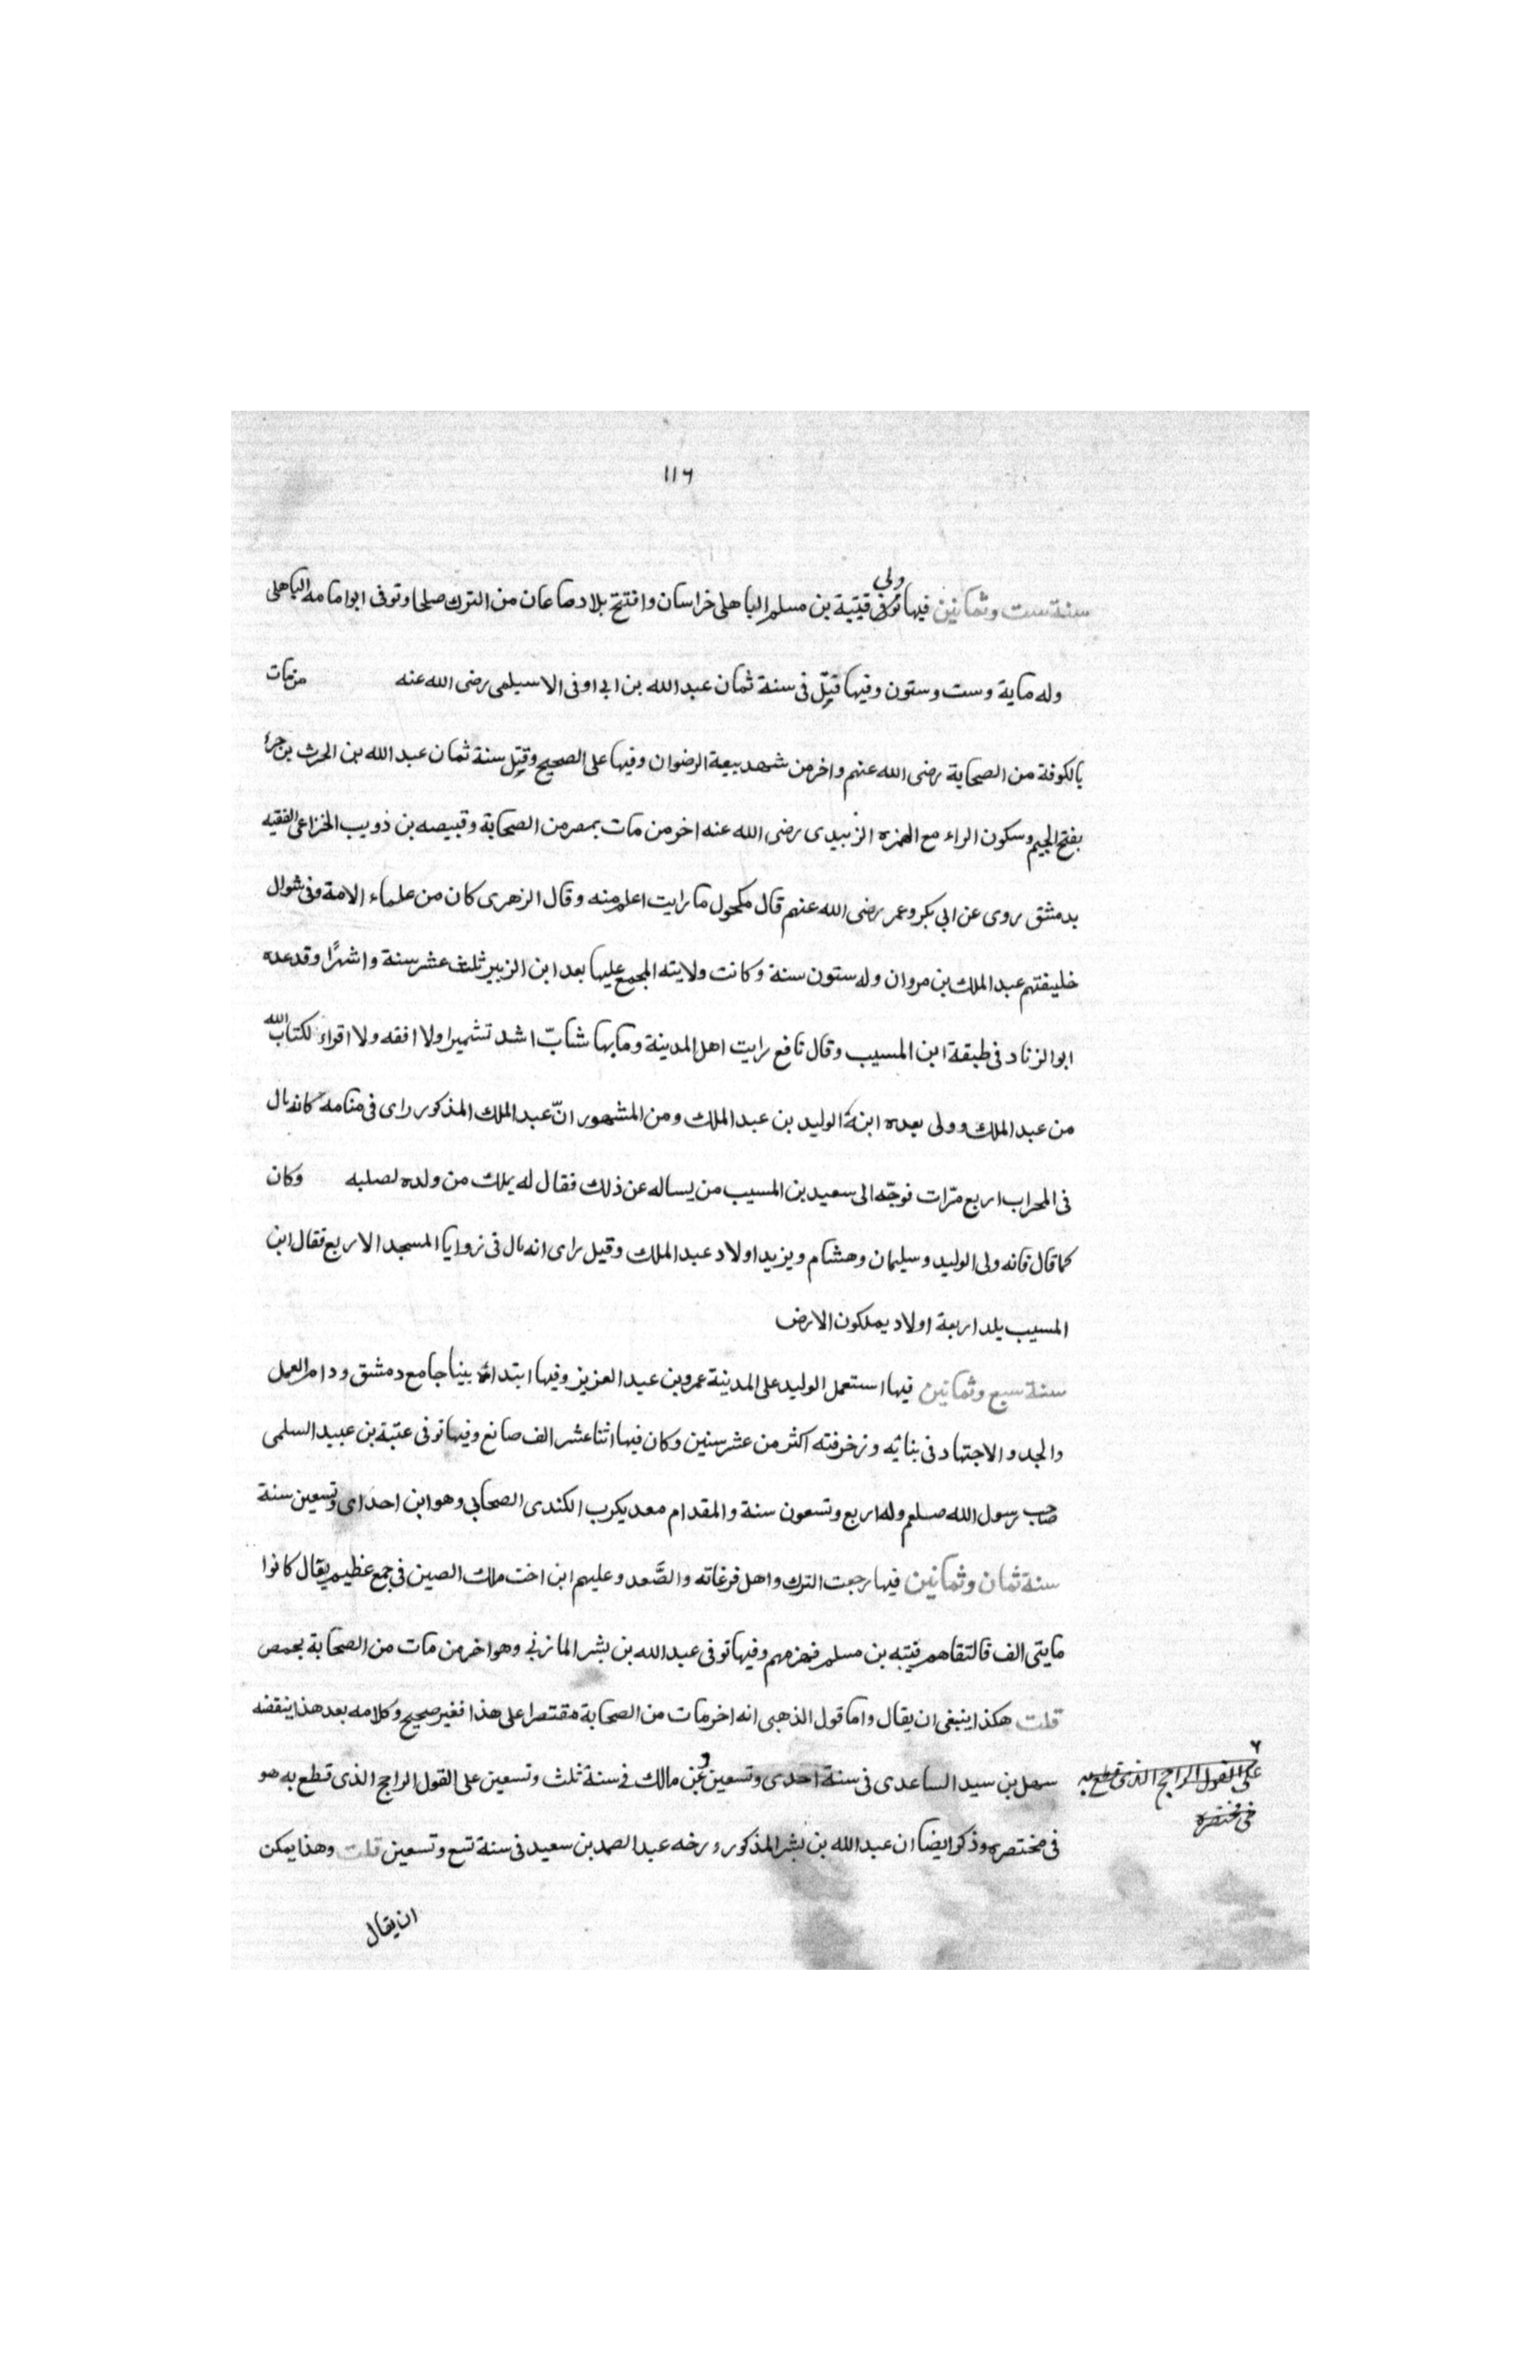 ١١٦
ولى
سنة ست وثمانين فيها توفى قتيبة بن مسلم الباهلى خراسان وافتتح بلاد صاعان من الترك صلحا وتوفى ابو امامه الباهلى
وله ماية وست وستون وفيها وقيل فى سنة ثمان عبد الله بن ابى اوفى الاسيلمى رضى الله عنه من مات
بالكوفة من الصحابة رضى الله عنهم واخر من شهد بيعة الرضوان وفيها على الصحيح وقيل سنة ثمان عبد الله بن الحرث بن جزء
بفتح الجيم وسكون الراء مع الهمزه الزبيدى رضى الله عنه اخر من مات بمصر من الصحابة وقبيصه بن ذويب الخزاعى الفقيه
بدمشق روى عن ابى بكر وعمر رضى الله عنهم قال مكحول ما رايت اعلم منه وقال الزهرى كان من علماء الامة وفى شوال
خليفتهم عبد الملك بن مروان وله ستون سنة وكانت ولايته المجمع عليها بعد ابن الزبير ثلث عشر سنة واشهرًا وقد عده
ابو الزناد فى طبقة ابن المسيب وقال نافع رايت اهل المدينة وما بها شابّ اشد تشميرا ولا افقه ولا اقراء لكتاب الله
من عبد الملك وولى بعده ابنه الوليد بن عبد الملك ومن المشهور انّ عبد الملك المذكور راى فى منامه كانه بال
فى المحراب اربع مرّات فوجّه الى سعيد بن المسيب من يساله عن ذلك فقال له يملك من ولده لصلبه وكان
كما قال فانه ولى الوليد وسليمان وهشام ويزيد اولاد عبد الملك وقيل راى انه بال فى زوايا المسجد الاربع فقال ابن
المسيب يلد اربعة اولاد يملكون الارض
سنة سبع وثمانين فيها استعمل الوليد على المدينة عمرو بن عبد العزيز وفيها ابتداء بينا جامع دمشق ودام العمل
والجد والاجتهاد فى بنائه وزخرفته اكثر من عشر سنين وكان فيها اثنا عشر الف صانع وفيها توفى عتبة بن عبيد السلمى
صاحب رسول الله صلعم وله اربع وتسعون سنة والمقدام معد يكرب الكندى الصحابى وهو ابن احداى وتسعين سنة
سنة ثمان وثمانين فيها رجعت الترك واهل فرغانه والصَّعد وعليهم ابن اخت ملك الصين فى جمع عظيم يقال كانوا
مايتى الف فالتقاهم قتيبه بن مسلم فهزمهم وفيها توفى عبد الله بن بشر المازنى وهو اخر من مات من الصحابة بحمص
قلت هكذا ينبغى ان يقال واما قول الذهبى انه اخر مات من الصحابة مقتصرا على هذا فغير صحيح وكلامه بعد هذا ينقضه
سهل بن سيد الساعدى فى سنة احدى وتسعين وعن مالك فى سنة ثلث وتسعين على القول الراجح الذى قطع به هو
على القول الراجح الذى قطع به
فى مختصره
فى مختصره وذكر ايضا ان عبد الله بن بشر المذكور ورخه عبد الصمد بن سعيد فى سنة تسع وتسعين قلت وهذا يمكن
ان يقال